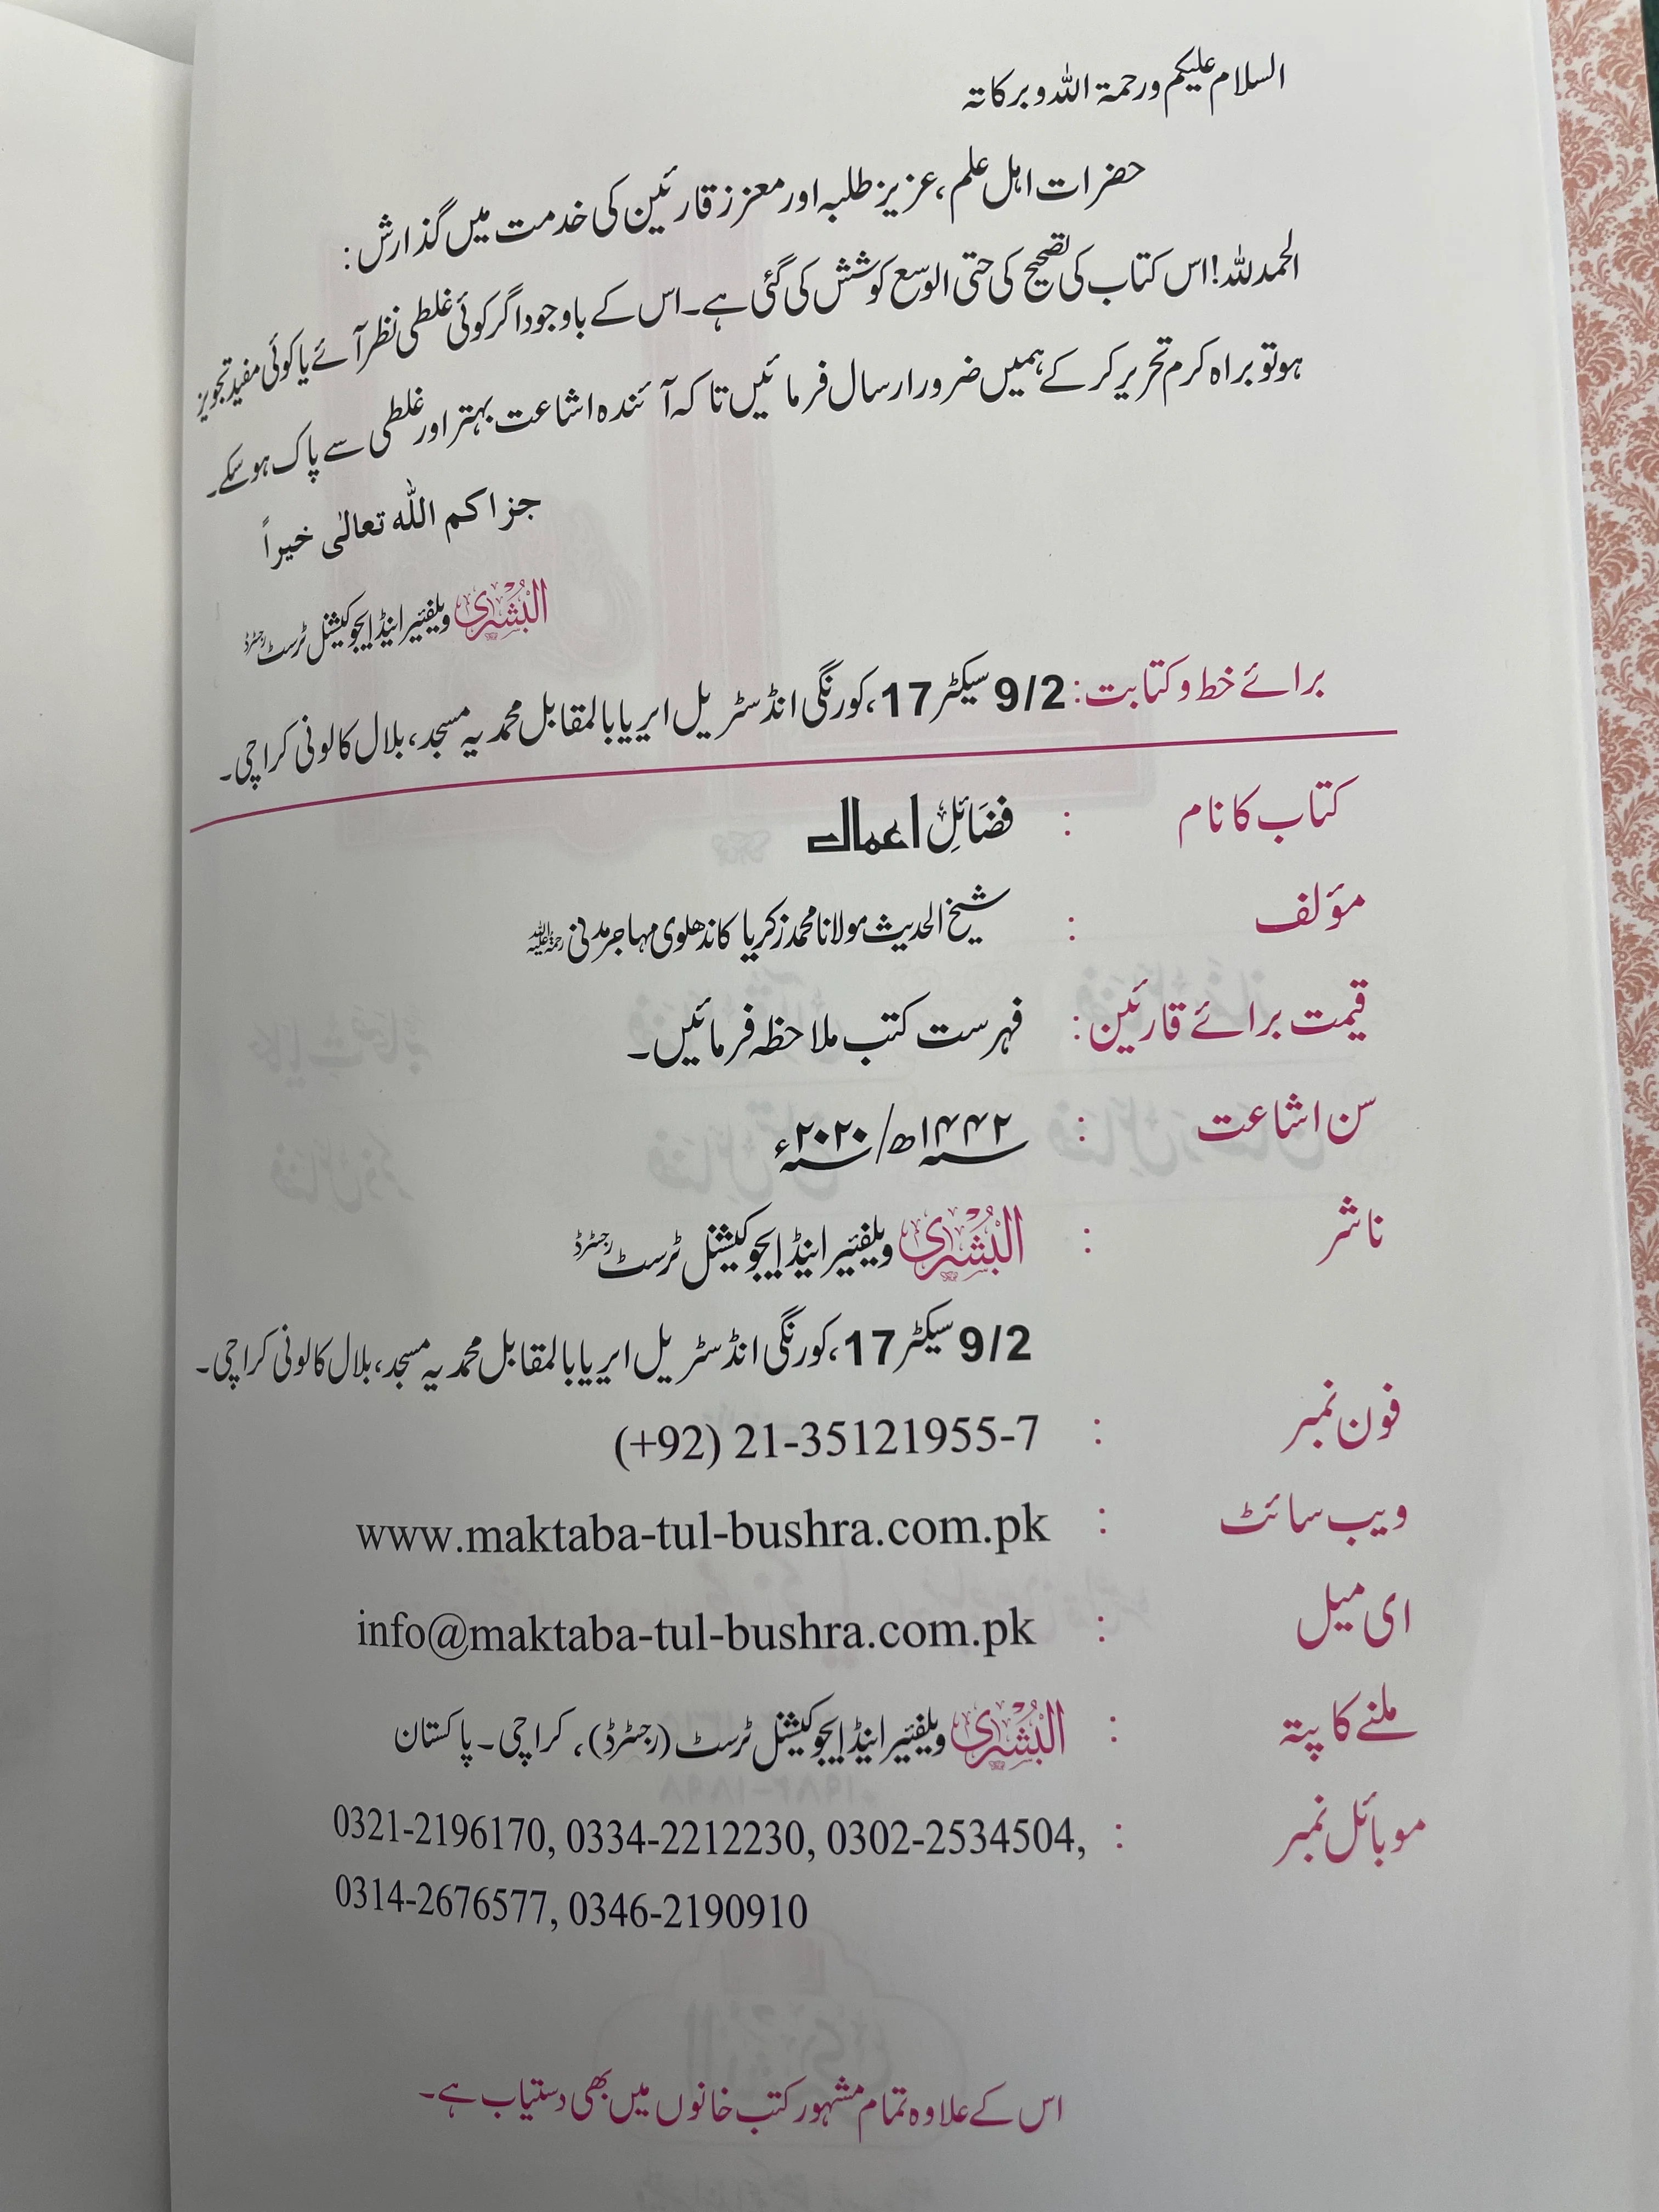 السلام علیکم ورحمۃ اللہ وبرکاتہ
حضرات اہل علم، عزیز طلبہ اور معزز قارئین کی خدمت میں گذارش:
الحمدللہ! اس کتاب کی تصحیح کی حتی الوسع کوشش کی گئی ہے۔ اس کے باوجود اگر کوئی غلطی نظر آئے یا کوئی مفید تجویز
ہو تو براہ کرم تحریر کر کے ہمیں ضرور ارسال فرمائیں تاکہ آئندہ اشاعت بہتر اور غلطی سے پاک ہوسکے۔
جزاکم اللہ تعالٰی خیراً
البُشریٰ ویلفیئر اینڈ ایجوکیشنل ٹرسٹ رجسٹرڈ
برائے خط وکتابت: 9/2 سیکٹر 17، کورنگی انڈسٹریل ایریا بالمقابل محمدیہ مسجد، بلال کالونی کراچی۔
کتاب کا نام : فضَائلِ اعمال
مؤلف : شیخ الحدیث مولانا محمد زکریا کاندھلوی مہاجر مدنی رحمۃ اللہ علیہ
قیمت برائے قارئین : فہرست کتب ملاحظہ فرمائیں۔
سن اشاعت : ۱۴۴۲ھ/ ۲۰۲۰ء
ناشر : البُشریٰ ویلفیئر اینڈ ایجوکیشنل ٹرسٹ رجسٹرڈ
9/2 سیکٹر 17، کورنگی انڈسٹریل ایریا بالمقابل محمدیہ مسجد، بلال کالونی کراچی۔
فون نمبر : (+92) 21-35121955-7
ویب سائٹ : www.maktaba-tul-bushra.com.pk
ای میل : info@maktaba-tul-bushra.com.pk
ملنے کا پتہ : البُشریٰ ویلفیئر اینڈ ایجوکیشنل ٹرسٹ (رجسٹرڈ)، کراچی۔ پاکستان
موبائل نمبر : 0321-2196170, 0334-2212230, 0302-2534504,
0314-2676577, 0346-2190910
اس کے علاوہ تمام مشہور کتب خانوں میں بھی دستیاب ہے۔